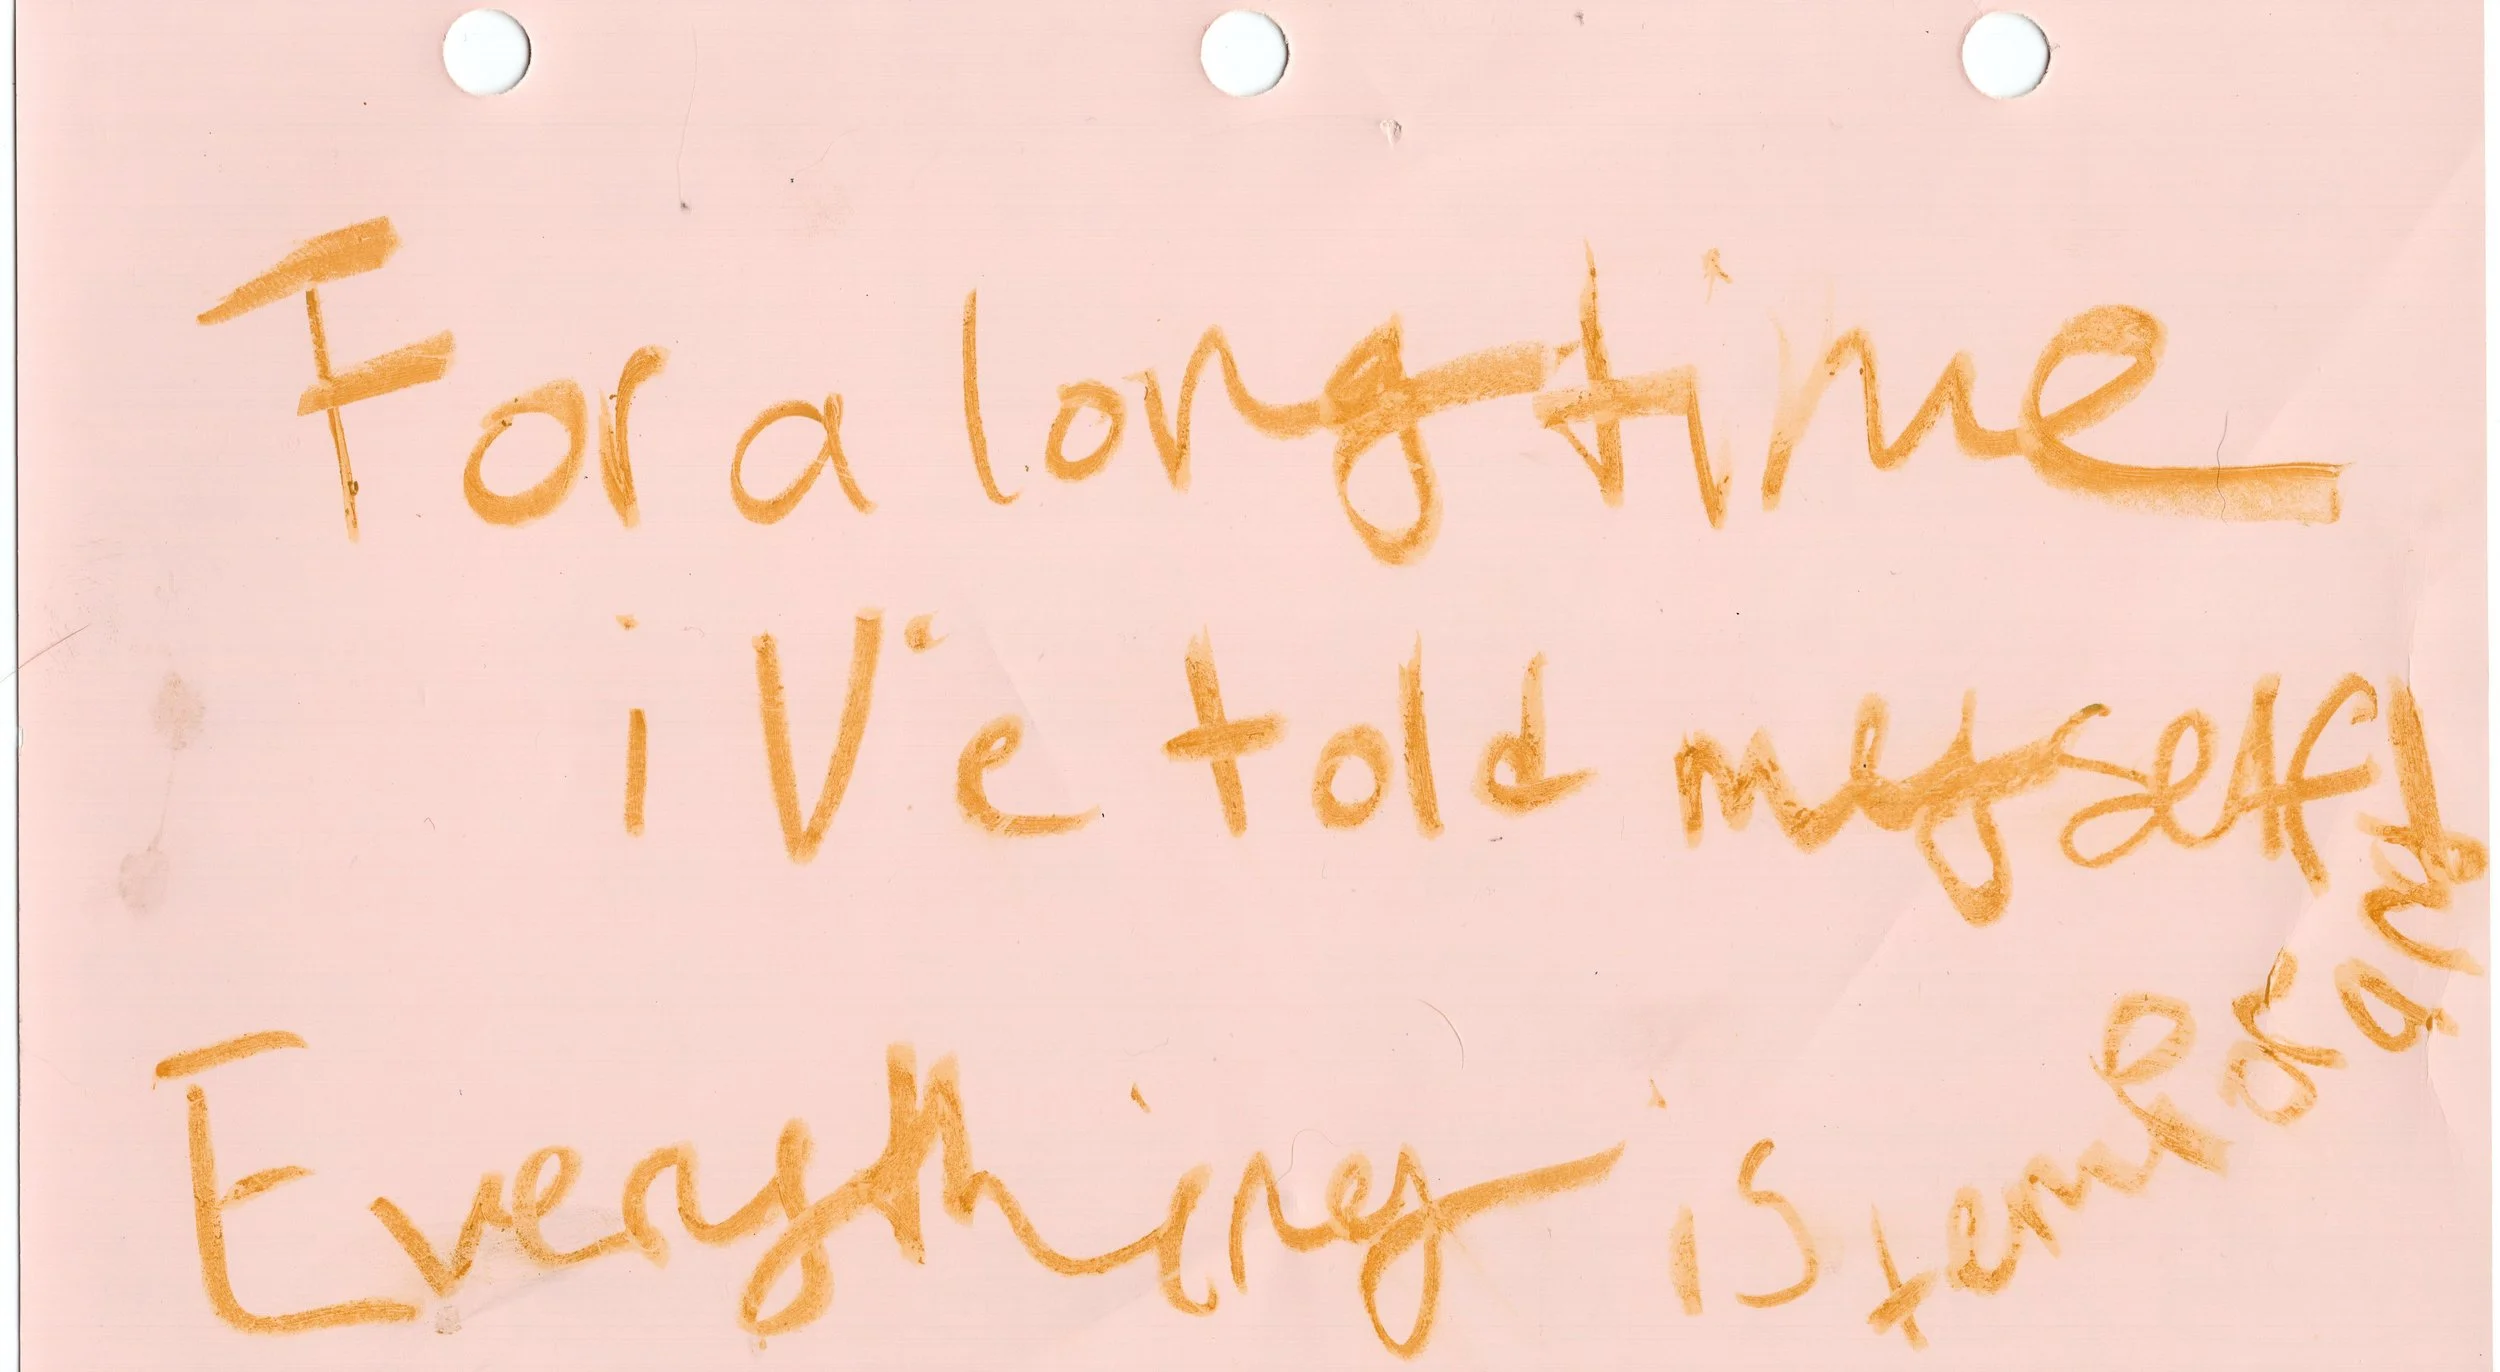 For a long time
i V'e told myself
Everything is temporary